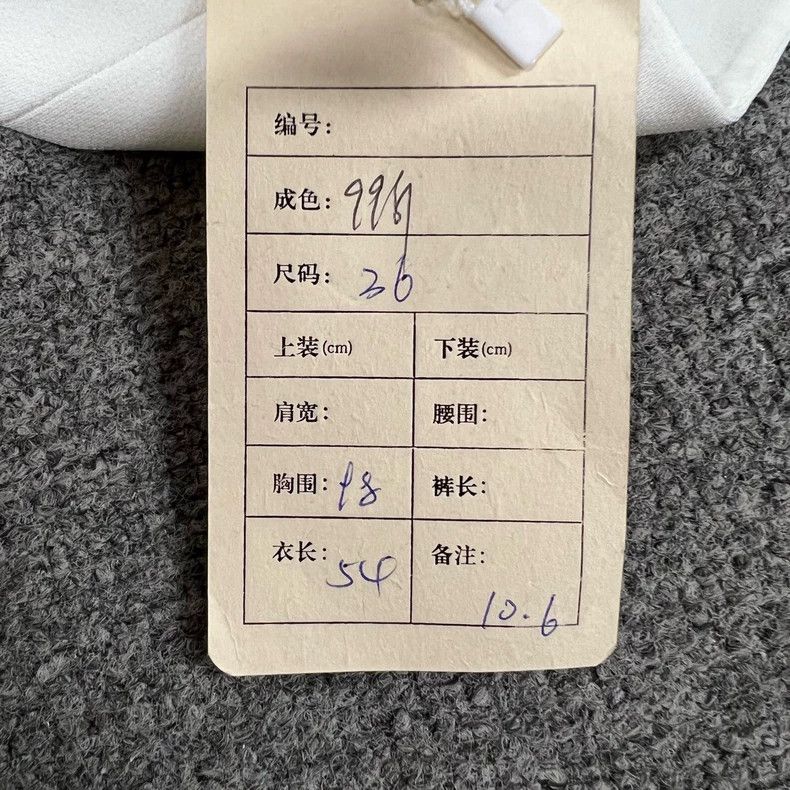 编号:
成色: 99新
尺码: 36
上装(cm) 下装(cm)
肩宽: 腰围:
胸围: 98 裤长:
衣长: 54 备注:
10.6